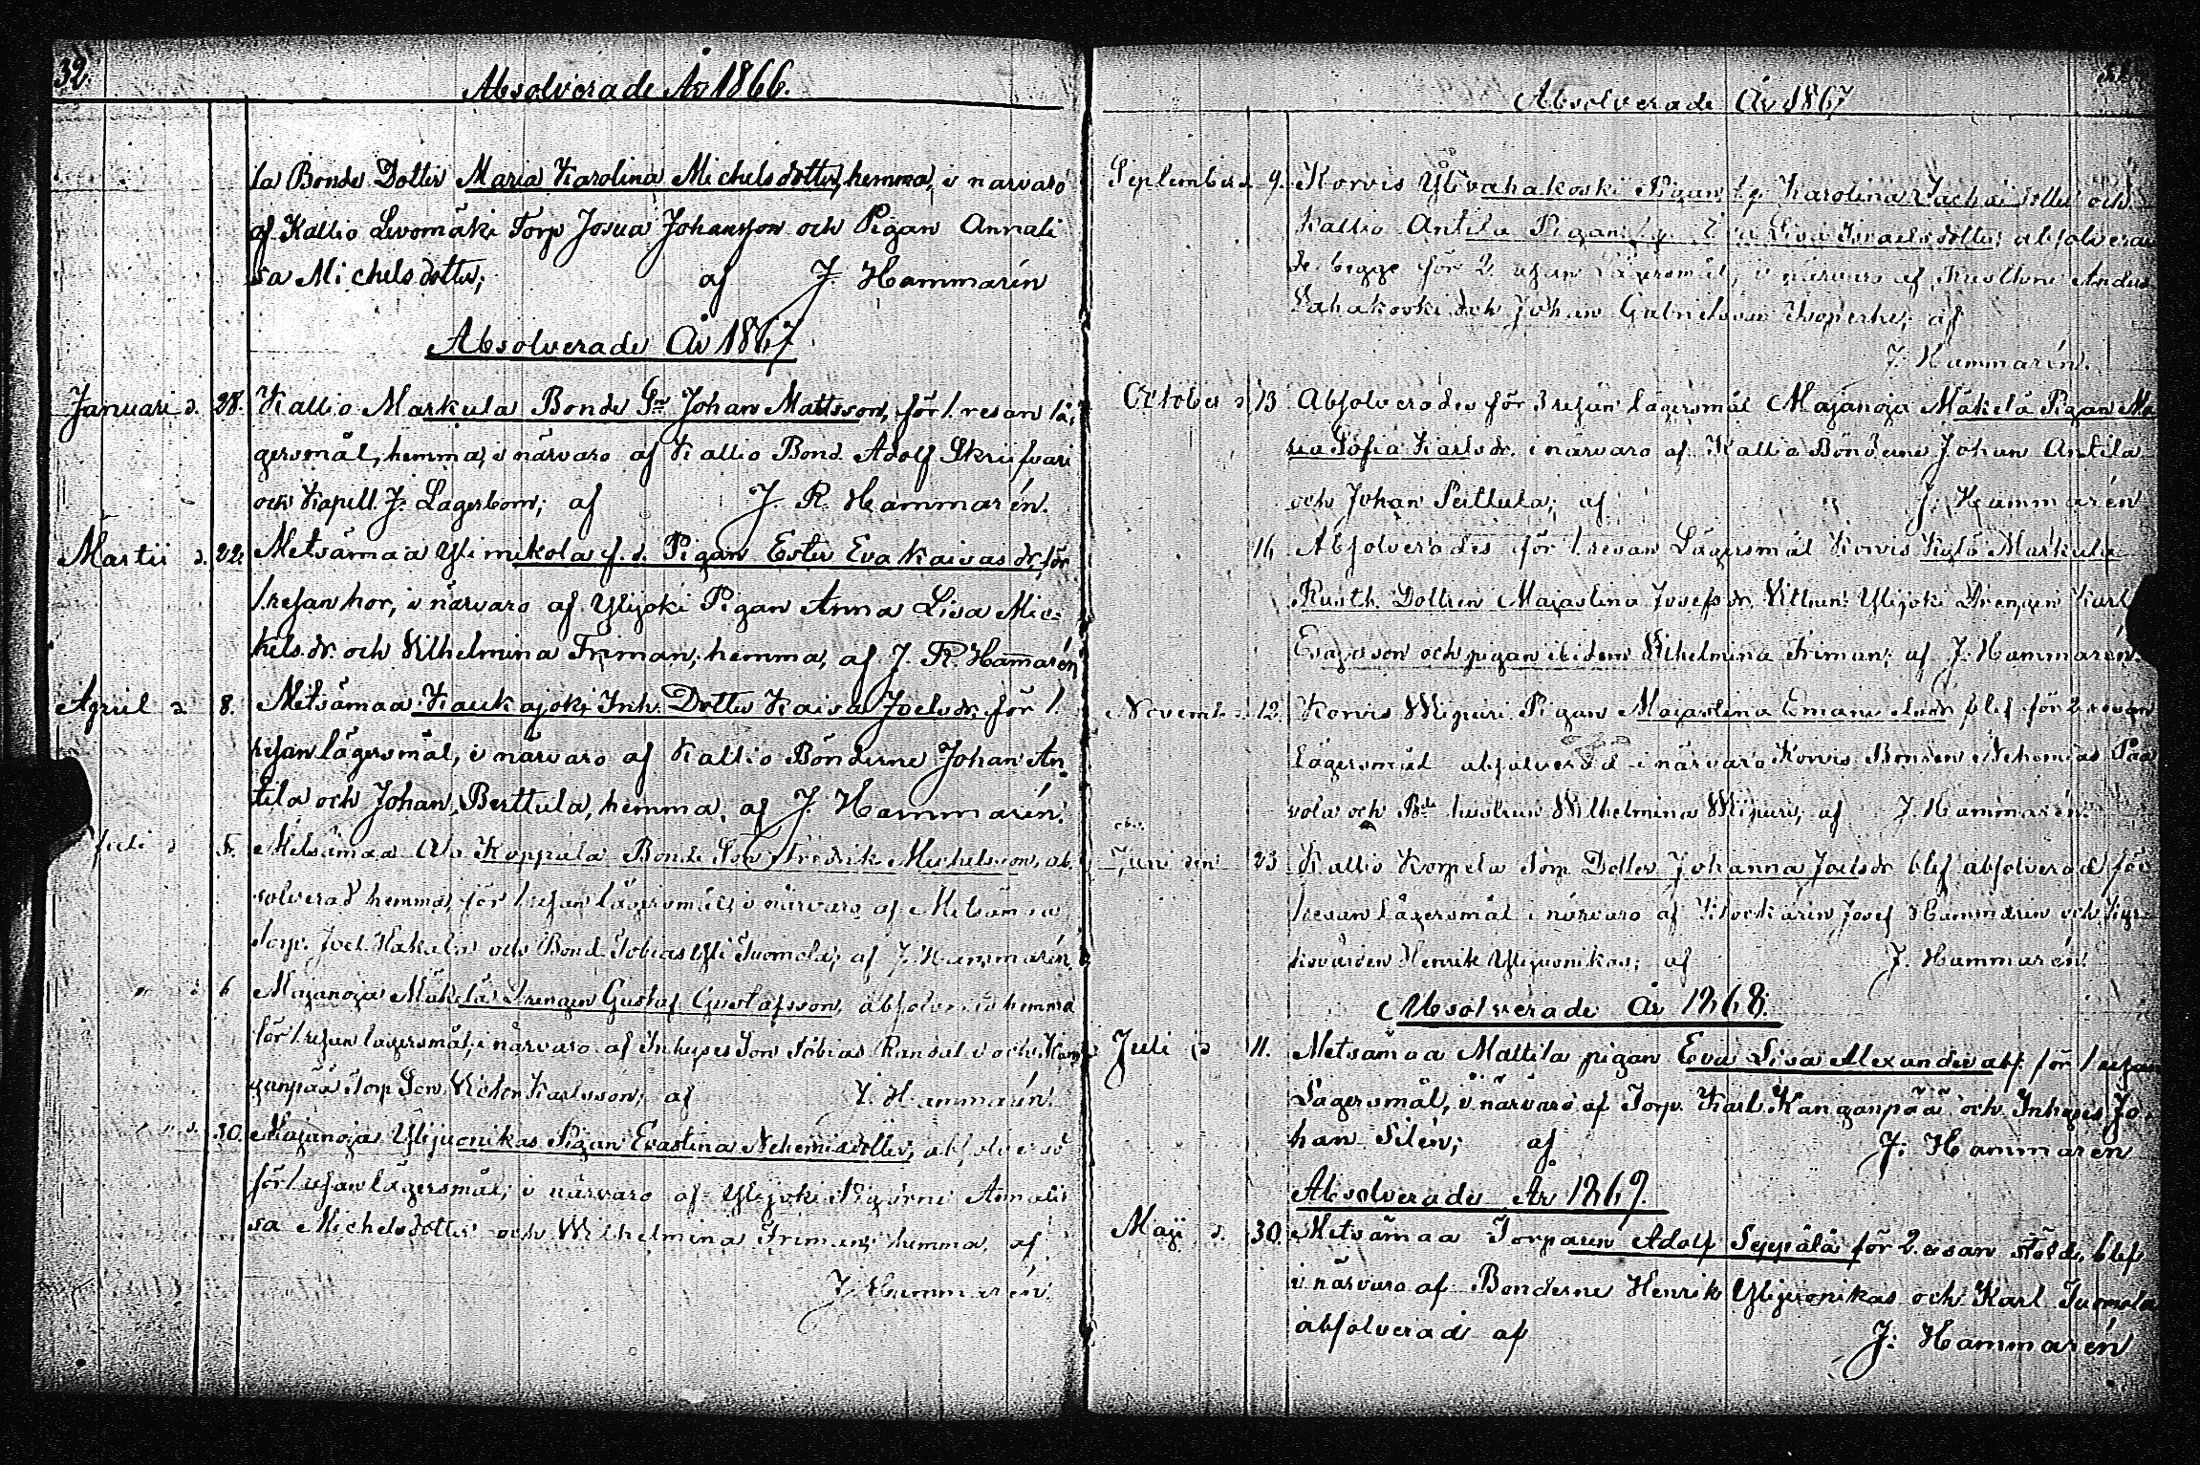 32.
Absolverade År 1866.
la Bonde Dotter Maria Karolina Michelsdotter, hemma, i narvaro
af Kallio Levomäki Torp Josua Johansson och Pigan Annali
sa Michelsdotter; af J. Hammarén
Absolverade År 1867
Januari d. 28. Kallio Markula Bonde Sn Johan Mattsson, för 1. resan lä-
gersmål, hemma, i närvaro af Kallio Bond. Adolf Skriifvari
och Kapell. J. Lagerbom; af J. R. Hammarén.
Martii d. 22. Metsämaa Ylimikola f. d. Pigan Ester Eva Kaisas dr. för
1. resan hor, i närvaro af Ylijoki Pigan Anna Lisa Mic-
hels dr. och Vilhelmina Friman, hemma, af J. R. Hammarén
April d. 8. Metsämaa Kaukajoki Inh. Dotter Kaisa Joels dr. för 1.
resan lägersmål, i närvaro af Kallio Bönderne Johan An-
tila och Johan Perttula, hemma, af J. Hammarén.
Juli d. 5. Metsämaa Ala Koppala Bonde Son Fredrik Michelsson, ab-
solverad hemma, för 1. resan lägersmål, i närvaro af Metsämaa
Torp. Joel Hakala och Bond. Tobias Yli Tuomola; af J. Hammarén.
" d. 6 Majanoja Mäkelä Drengen Gustaf Gustafsson, absolverad hemma
för 1. resan lagersmål, i närvaro af Inhyses Son Tobias Randal i och Kan-
ganpää Torp Son Victor Karlsson; af J. Hammarén.
" d. 30. Majanoja Ylijuonikas Pigan Evastina Nehemiädotter, absolverad
för 1 resan lägersmål; i närvaro af Ylijoki Pigorne Annali
sa Michelsdotter och Wilhelmina Friman; hemma, af
J. Hammarén.
Absolverade År 1867
September d. 9. Korvis Yli Vahakoski Pigan Karolina dotter och
Kallio Antila Pigan Eva Lisa Israelsdotter; absolvera-
de begge för 2. resan Lägersmål, i närvaro af Anders
Vahakoski och Johan Gabrielsson Isoperhe; af
J. Hammarén.
October d. 13 Absolverades för 3 resan lägersmål Majanoja Mäkelä Pigan Ma-
ria Sofia Karls dr. i närvaro af Kallio Bönderne Johan Antila
och Johan Perttula; af J. Hammarén
" 16 Absolverades för 1. resan Lägersmål Korvis Kylä Markula
Rusth. Dottren Majastina Josefs dr. Vittnen: Ylijoki Drengen Karl
Esaiasson och pigan ibidem Vilhelmina Friman; af J. Hammarén.
Novemb. d. 12. Korvis Wipuri Pigan Majastina Emanuels dr blef för 2 resan
lägersmål absolverad i närvaro Korvis Bonden Nehemias Paa
vola och Bde hustrun Wilhelmina Wipuri; af J. Hammarén.
Juni den 23 Kallio Korpela Torp Dotter Johanna Joels dr blef absolverad för
1 resan lägersmål i närvaro af Klockarin Josef Hammarén och Kyr-
kovärden Henrik Ylijuonikas; af J. Hammarén.
Absolverade År 1868.
Juli d 11. Metsämaa Mattila pigan Eva Lisa Alexander abs. för 1 resan
Lägersmål, i närvaro af Torp. Karl Kanganpää och Inhyses Jo-
han Silén; af J. Hammarén
Absolverade År 1869.
Maji d. 30. Metsämaa Torparen Adolf Seppälä för 2. resan stöld, blef
i närvaro af Bonderne Henrik Ylijuonikas och Karl Tuomola
absolverad af J. Hammarén